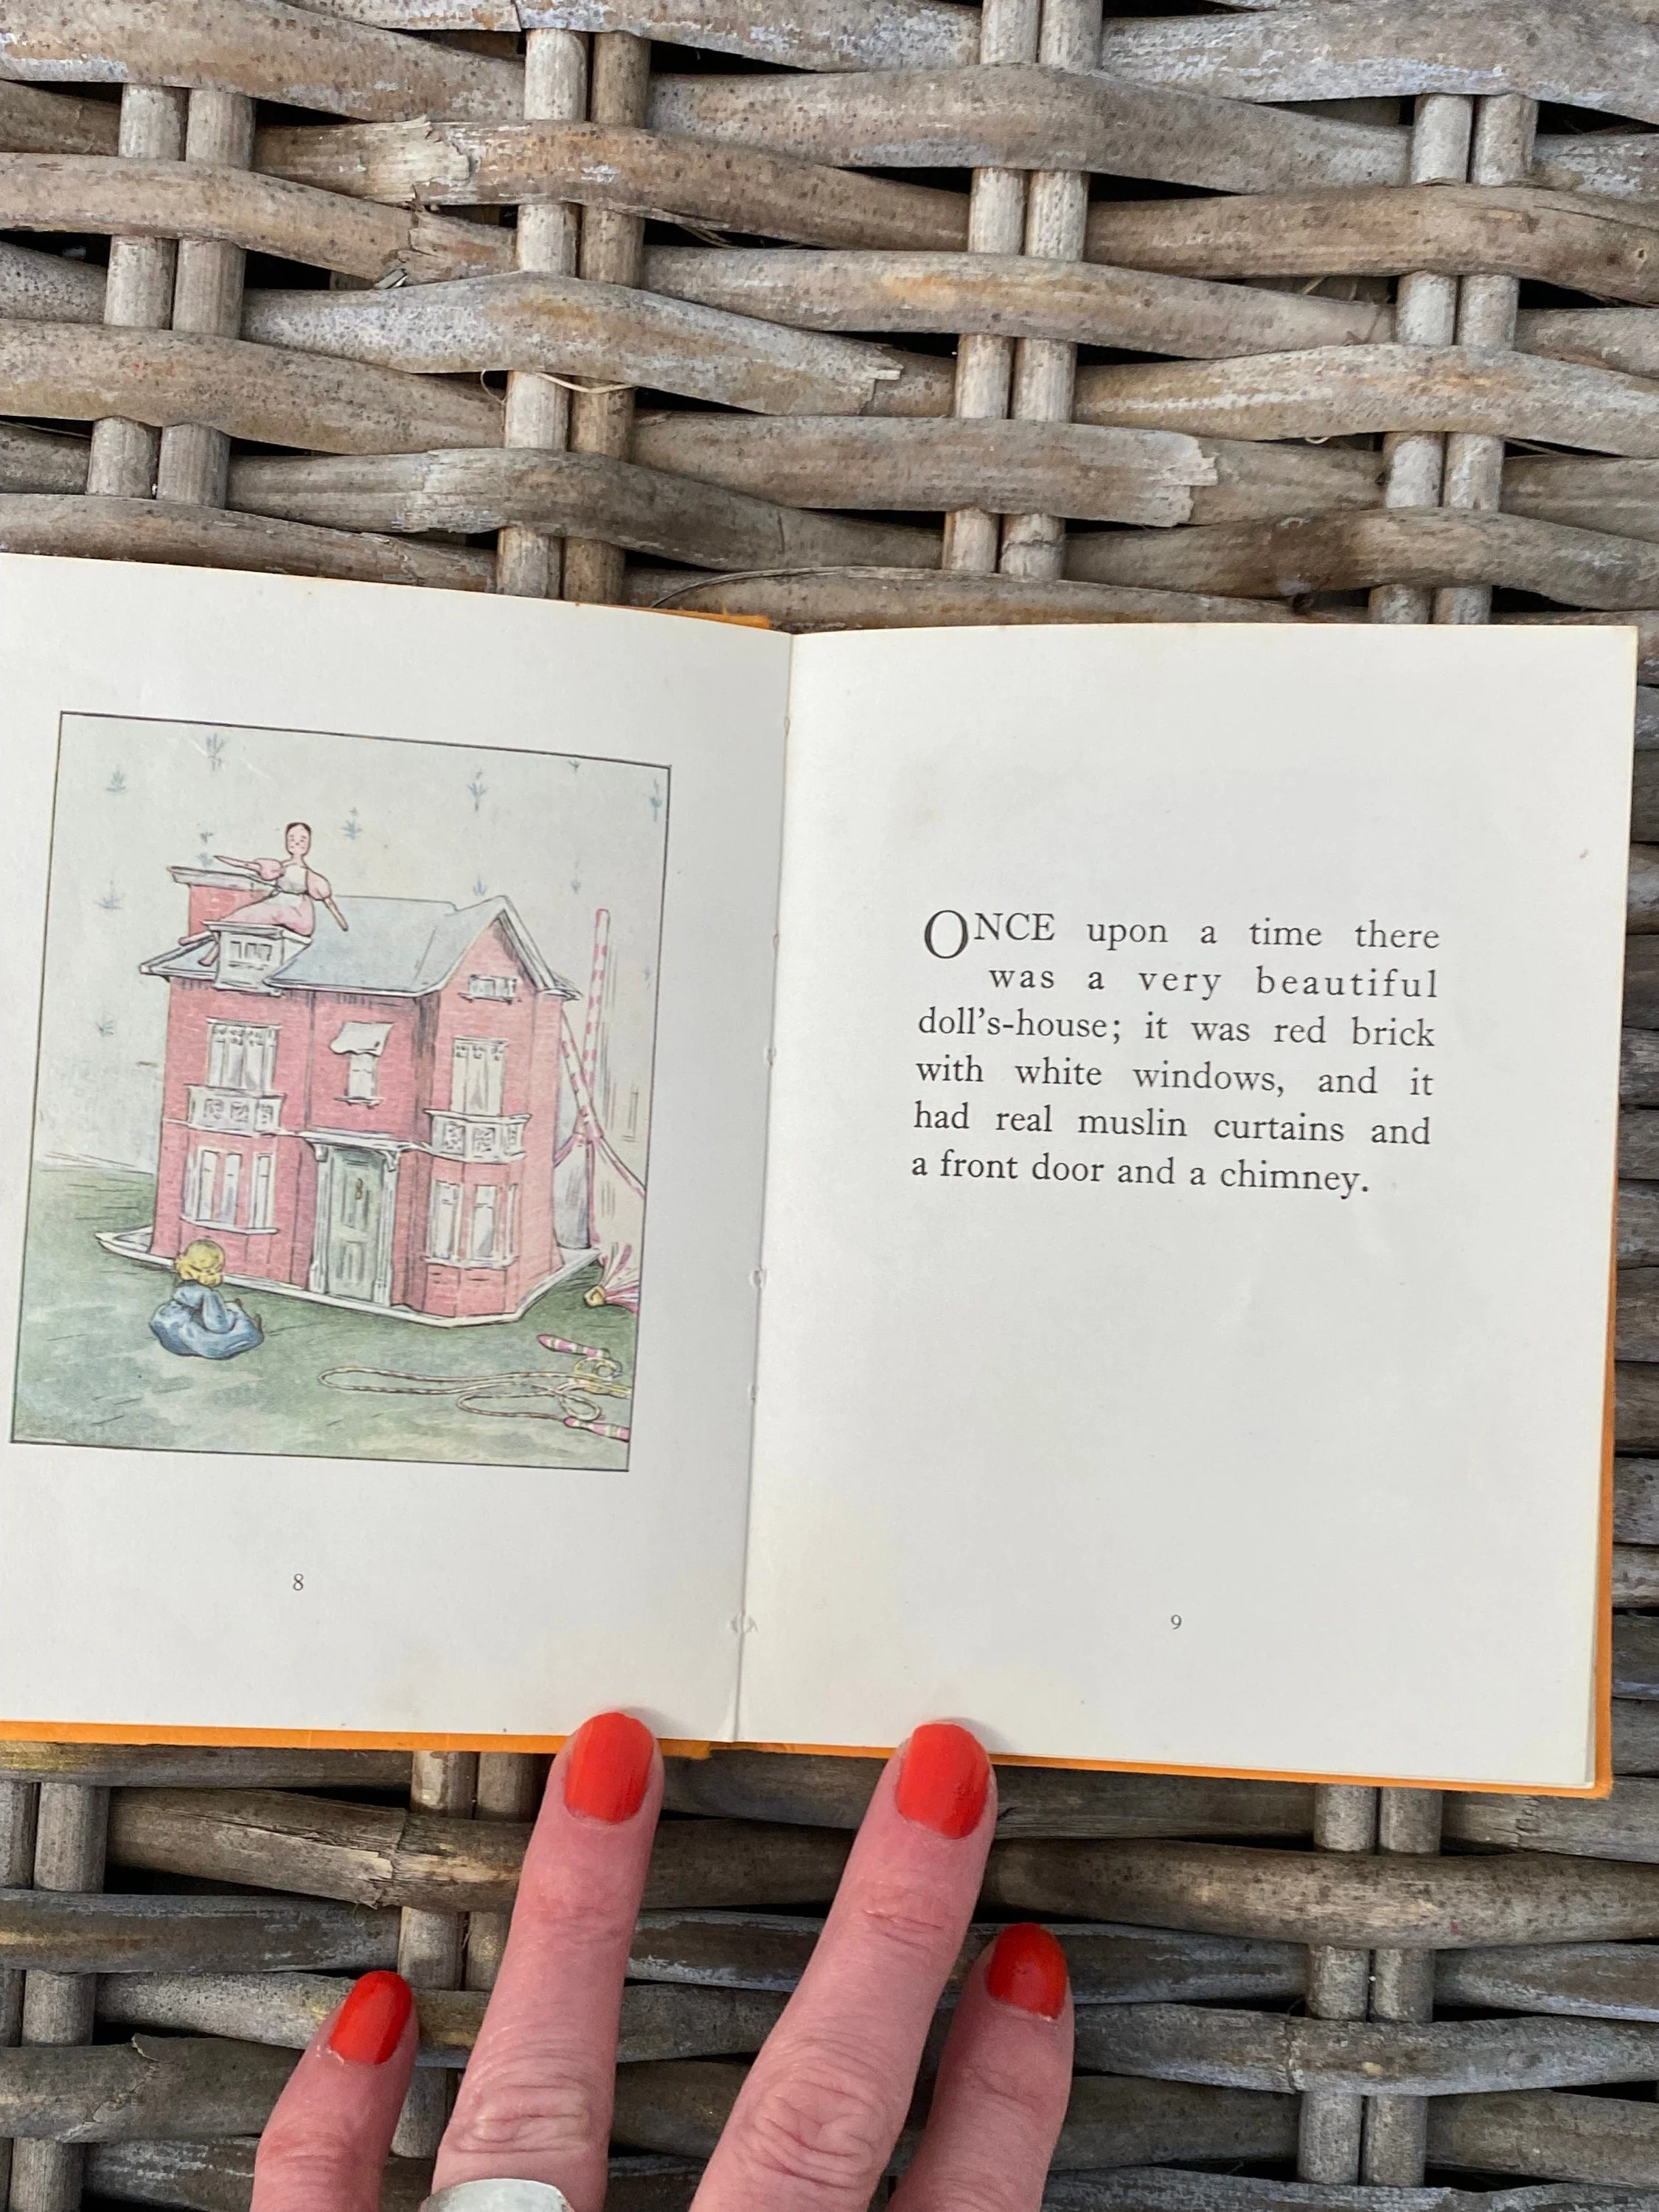 8
ONCE upon a time there
was a very beautiful
doll's-house; it was red brick
with white windows, and it
had real muslin curtains and
a front door and a chimney.
9